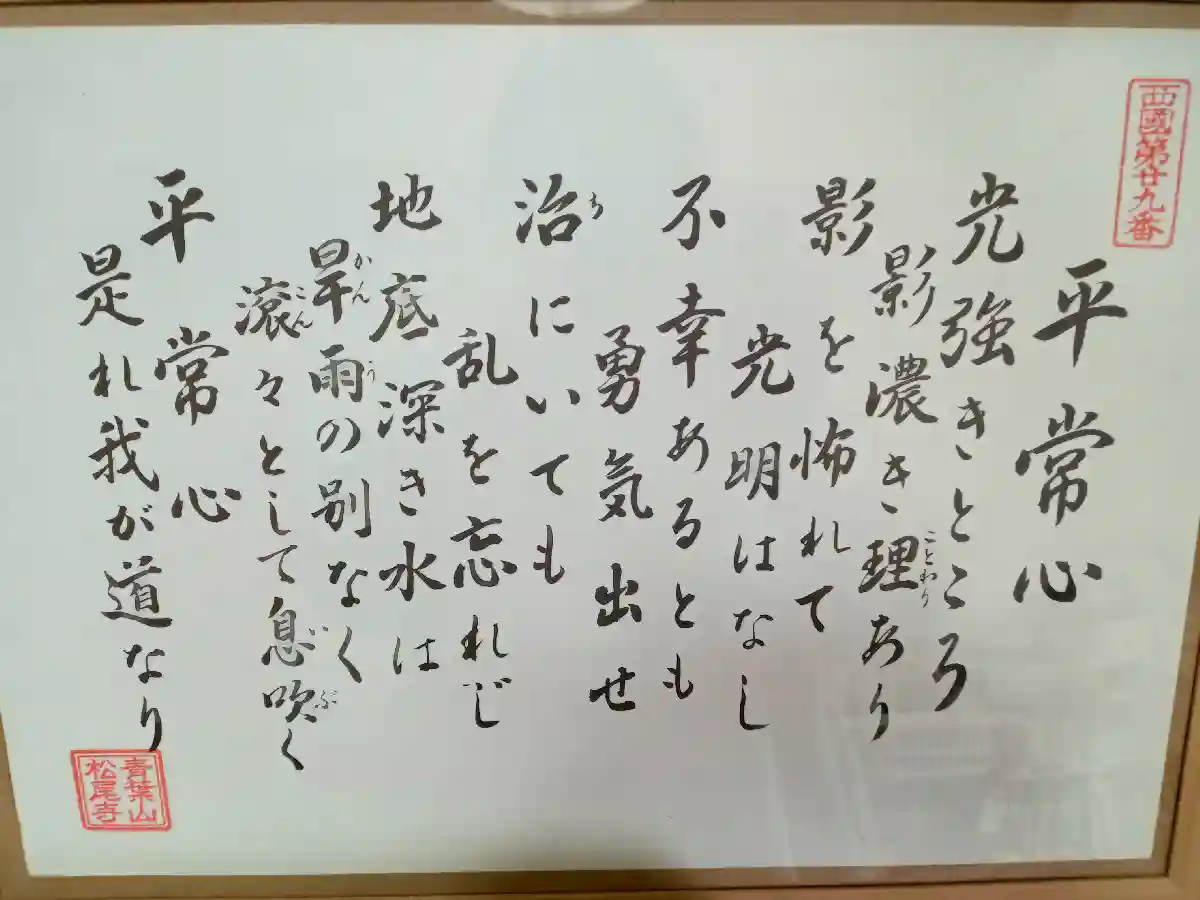 西國第廿九番
平常心
光強きところ
影濃き理あり
ことわり
影を怖れて
光明はなし
不幸あるとも
勇気出せ
治にいても
ち
乱を忘れじ
地底深き水は
旱雨の別なく
かん う
滾々として息吹く
こん いぶ
平常心
是れ我が道なり
青葉山
松尾寺